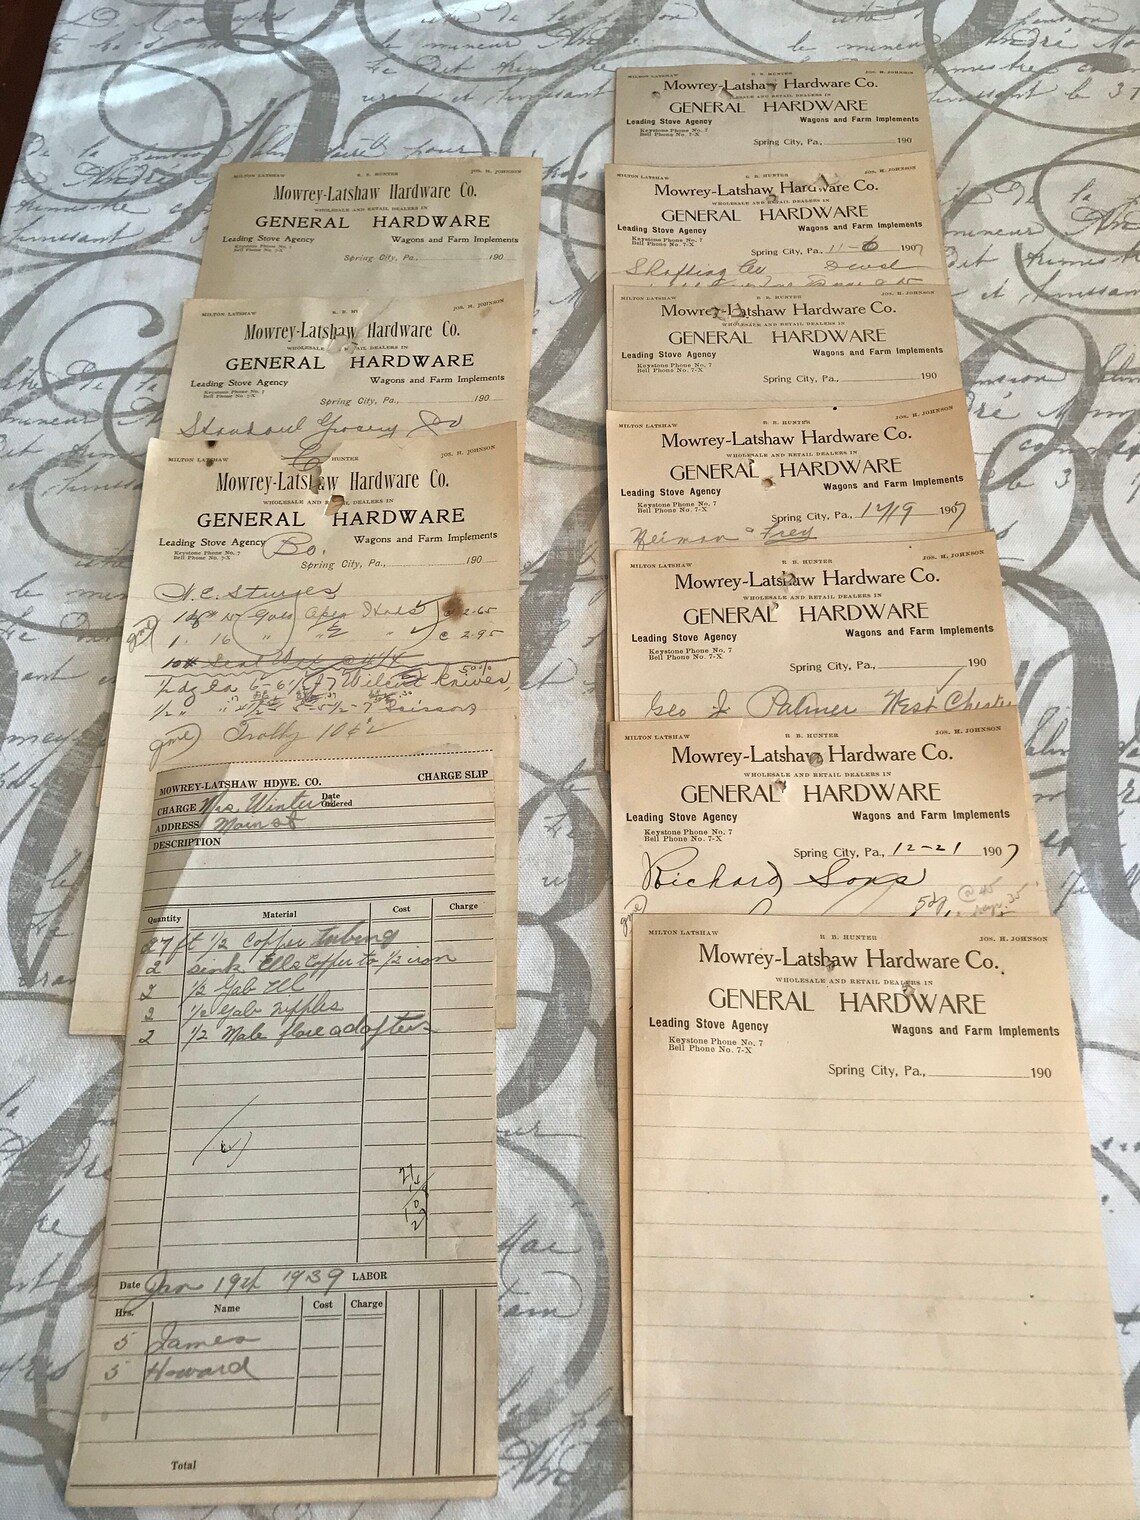 MILTON LATSHAW R. B. HUNTER JOS. H. JOHNSON
Mowrey-Latshaw Hardware Co.
WHOLESALE AND RETAIL DEALERS IN
GENERAL HARDWARE
Leading Stove Agency Wagons and Farm Implements
Keystone Phone No. 7
Bell Phone No. 7-X
Spring City, Pa., 190
MILTON LATSHAW
JOS. H. JOHNSON
Mowrey-Latshaw Hardware Co.
GENERAL HARDWARE
Leading Stove Agency Wagons and Farm Implements
Keystone Phone No. 7
Bell Phone No. 7-X
Spring City, Pa., 190
Grocery
MILTON LATSHAW HUNTER JOS. H. JOHNSON
Mowrey-Latshaw Hardware Co.
WHOLESALE AND RETAIL DEALERS IN
GENERAL HARDWARE
Leading Stove Agency Wagons and Farm Implements
Keystone Phone No. 7
Bell Phone No. 7-X
Spring City, Pa., 190
H. C. Sturges
2.65
1 16 " " 2.95
knives
Scissors
gone Trolly 10¢
MOWREY-LATSHAW HDWE. CO. CHARGE SLIP
CHARGE Mrs. Winter Date Ordered
ADDRESS Main st
DESCRIPTION
Quantity Material Cost Charge
27 ft 1/2 Copper tubing
2 sink Ells Copper to 1/2 iron
2 1/2 Galv Ell
2 1/2 Galv nipples
2 1/2 Male flare adapters
Date Jan 19th 1939 LABOR
Hrs. Name Cost Charge
5 James
5 Howard
Total
MILTON LATSHAW R. B. HUNTER JOS. H. JOHNSON
Mowrey-Latshaw Hardware Co.
WHOLESALE AND RETAIL DEALERS IN
GENERAL HARDWARE
Leading Stove Agency Wagons and Farm Implements
Keystone Phone No. 7
Bell Phone No. 7-X
Spring City, Pa., 190
MILTON LATSHAW R. B. HUNTER JOS. H. JOHNSON
Mowrey-Latshaw Hardware Co.
WHOLESALE AND RETAIL DEALERS IN
GENERAL HARDWARE
Leading Stove Agency Wagons and Farm Implements
Keystone Phone No. 7
Bell Phone No. 7-X
Spring City, Pa., 11-6 1907
Shafting
MILTON LATSHAW R. B. HUNTER JOS. H. JOHNSON
Mowrey-Latshaw Hardware Co.
WHOLESALE AND RETAIL DEALERS IN
GENERAL HARDWARE
Leading Stove Agency Wagons and Farm Implements
Keystone Phone No. 7
Bell Phone No. 7-X
Spring City, Pa., 190
MILTON LATSHAW R. B. HUNTER JOS. H. JOHNSON
Mowrey-Latshaw Hardware Co.
WHOLESALE AND RETAIL DEALERS IN
GENERAL HARDWARE
Leading Stove Agency Wagons and Farm Implements
Keystone Phone No. 7
Bell Phone No. 7-X
Spring City, Pa., 12/19 1907
Heiman Frey
MILTON LATSHAW R. B. HUNTER JOS. H. JOHNSON
Mowrey-Latshaw Hardware Co.
WHOLESALE AND RETAIL DEALERS IN
GENERAL HARDWARE
Leading Stove Agency Wagons and Farm Implements
Keystone Phone No. 7
Bell Phone No. 7-X
Spring City, Pa., 190
Geo J. Palmer West Chester
MILTON LATSHAW R. B. HUNTER JOS. H. JOHNSON
Mowrey-Latshaw Hardware Co.
WHOLESALE AND RETAIL DEALERS IN
GENERAL HARDWARE
Leading Stove Agency Wagons and Farm Implements
Keystone Phone No. 7
Bell Phone No. 7-X
Spring City, Pa., 12-21 1907
Richard Sons
MILTON LATSHAW R. B. HUNTER JOS. H. JOHNSON
Mowrey-Latshaw Hardware Co.
WHOLESALE AND RETAIL DEALERS IN
GENERAL HARDWARE
Leading Stove Agency Wagons and Farm Implements
Keystone Phone No. 7
Bell Phone No. 7-X
Spring City, Pa., 190